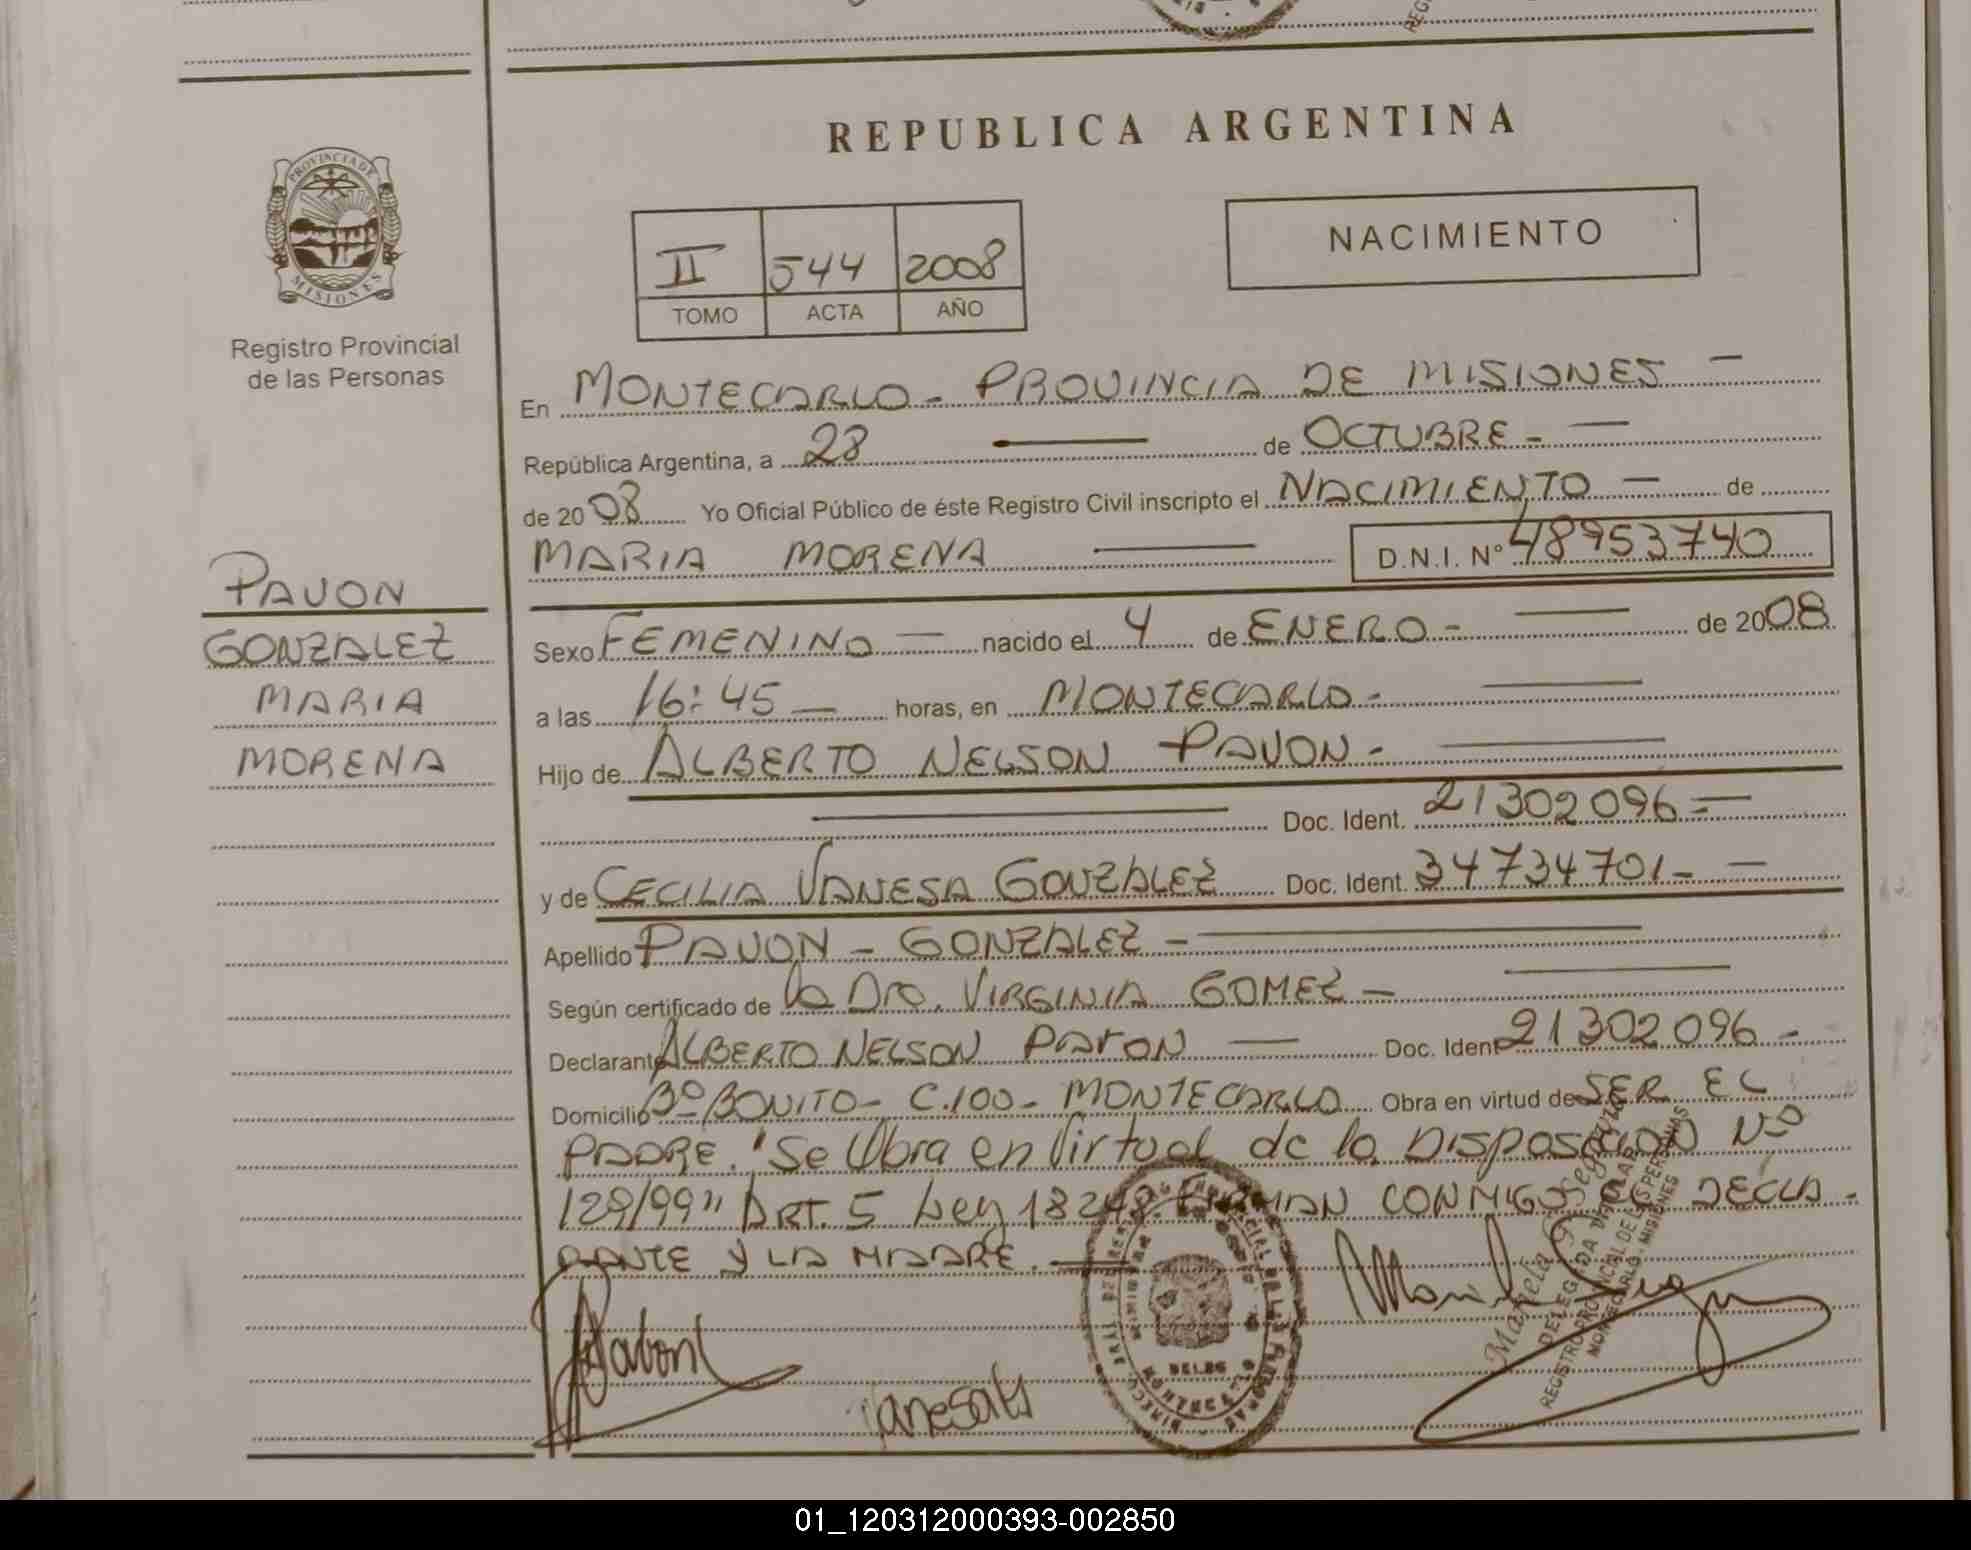 REPUBLICA ARGENTINA
PROVINCIA DE
MISIONES
Registro Provincial
de las Personas
NACIMIENTO
II 544 2008
TOMO ACTA AÑO
En MONTECARLO - PROVINCIA DE MISIONES —
República Argentina, a 28 — de OCTUBRE - —
de 2008 Yo Oficial Público de éste Registro Civil inscripto el NACIMIENTO — de
MARIA MORENA — D.N.I. N° 48953740
PAVON
GONZALEZ
MARIA
MORENA
Sexo FEMENINO — nacido el 4 de ENERO - — de 2008
a las 16:45 — horas, en MONTECARLO - —
Hijo de ALBERTO NELSON PAVON - —
— Doc. Ident. 21302096 - —
y de CECILIA VANESA GONZALEZ Doc. Ident. 34734701 - —
Apellido PAVON - GONZALEZ - —
Según certificado de la Dra. VIRGINIA GOMEZ - —
Declarante ALBERTO NELSON PAVON — Doc. Ident 21302096 -
Domicilio B° BONITO - C.100 - MONTECARLO Obra en virtud de SER EL
PADRE. "Se Obra en Virtud de la DISPOSICION N°
129/99" ART. 5 Ley 18248. FIRMAN CONMIGO EL DECLA-
RANTE Y LA MADRE. —
Pabon
DELEGADA TITULAR
REGISTRO PROVINCIAL DE LAS PERSONAS
MONTECARLO - MISIONES
01_120312000393-002850